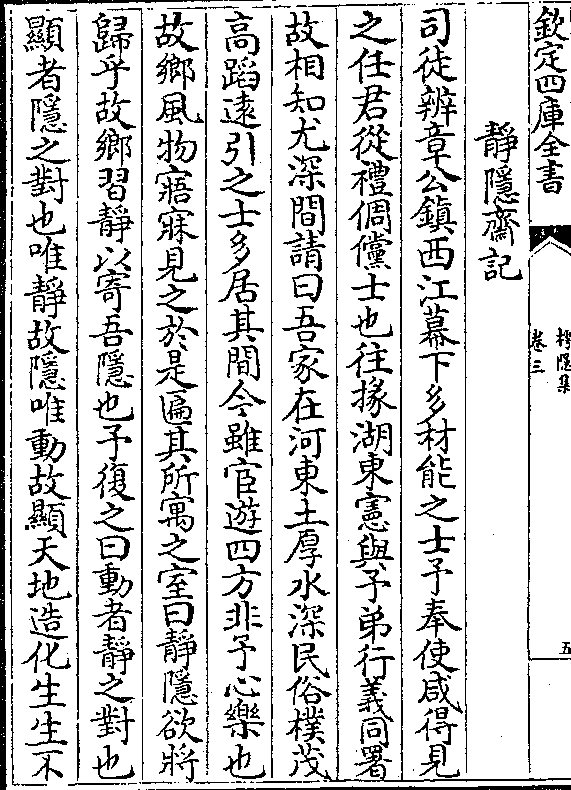 欽定四庫全書
樗隱集
卷三
五
靜隱齋記
司徒辨章公鎮西江幕下多材能之士予奉使咸得見
之任君從禮倜儻士也往掾湖東憲與予弟行義同署
故相知尤深間請曰吾家在河東土厚水深民俗樸茂
高蹈遠引之士多居其間今雖宦遊四方非予心樂也
故鄉風物寤寐見之於是匾其所寓之室曰靜隱欲將
歸乎故鄉習靜以寄吾隱也予復之曰動者靜之對也
顯者隱之對也唯靜故隱唯動故顯天地造化生生不